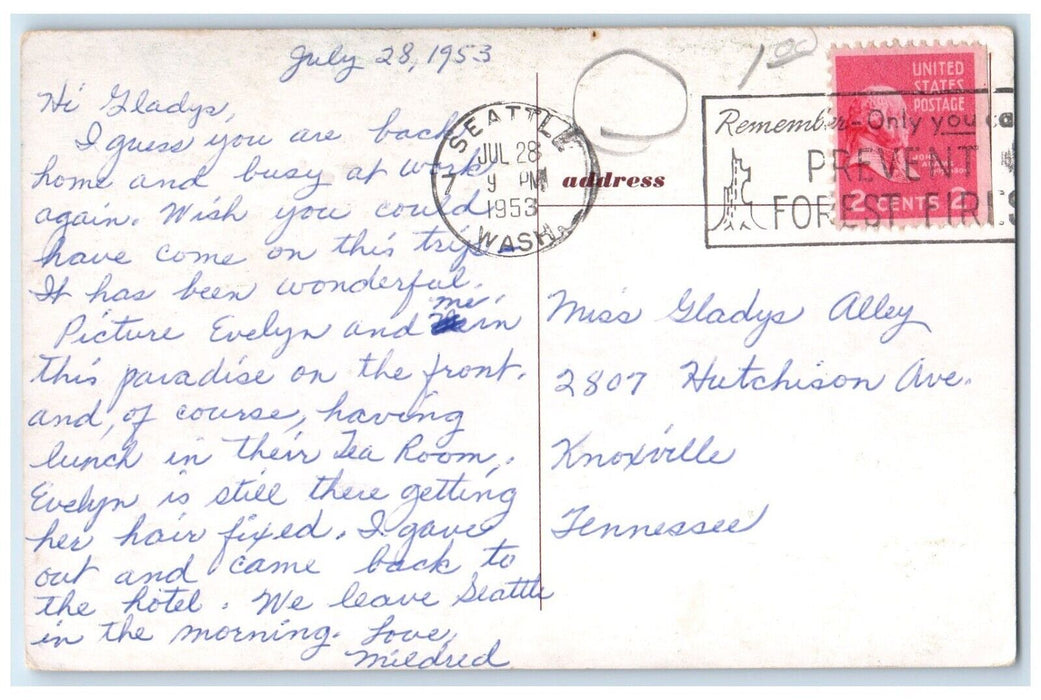 July 28, 1953
Hi Gladys,
I guess you are back
home and busy at work
again. Wish you could
have come on this trip.
It has been wonderful.
Picture Evelyn and me in
this paradise on the front.
and, of course, having
lunch in their Tea Room.
Evelyn is still there getting
her hair fixed. I gave
out and came back to
the hotel. We leave Seattle
in the morning. Love,
Mildred
1.00
SEATTLE
7
JUL 28
9 PM
1953
WASH.
address
UNITED
STATES
POSTAGE
JOHN
ADAMS
2 CENTS 2
Remember-Only you ca
PREVENT
FOREST FIRES
Miss Gladys Alley
2807 Hutchison Ave.
Knoxville
Tennessee